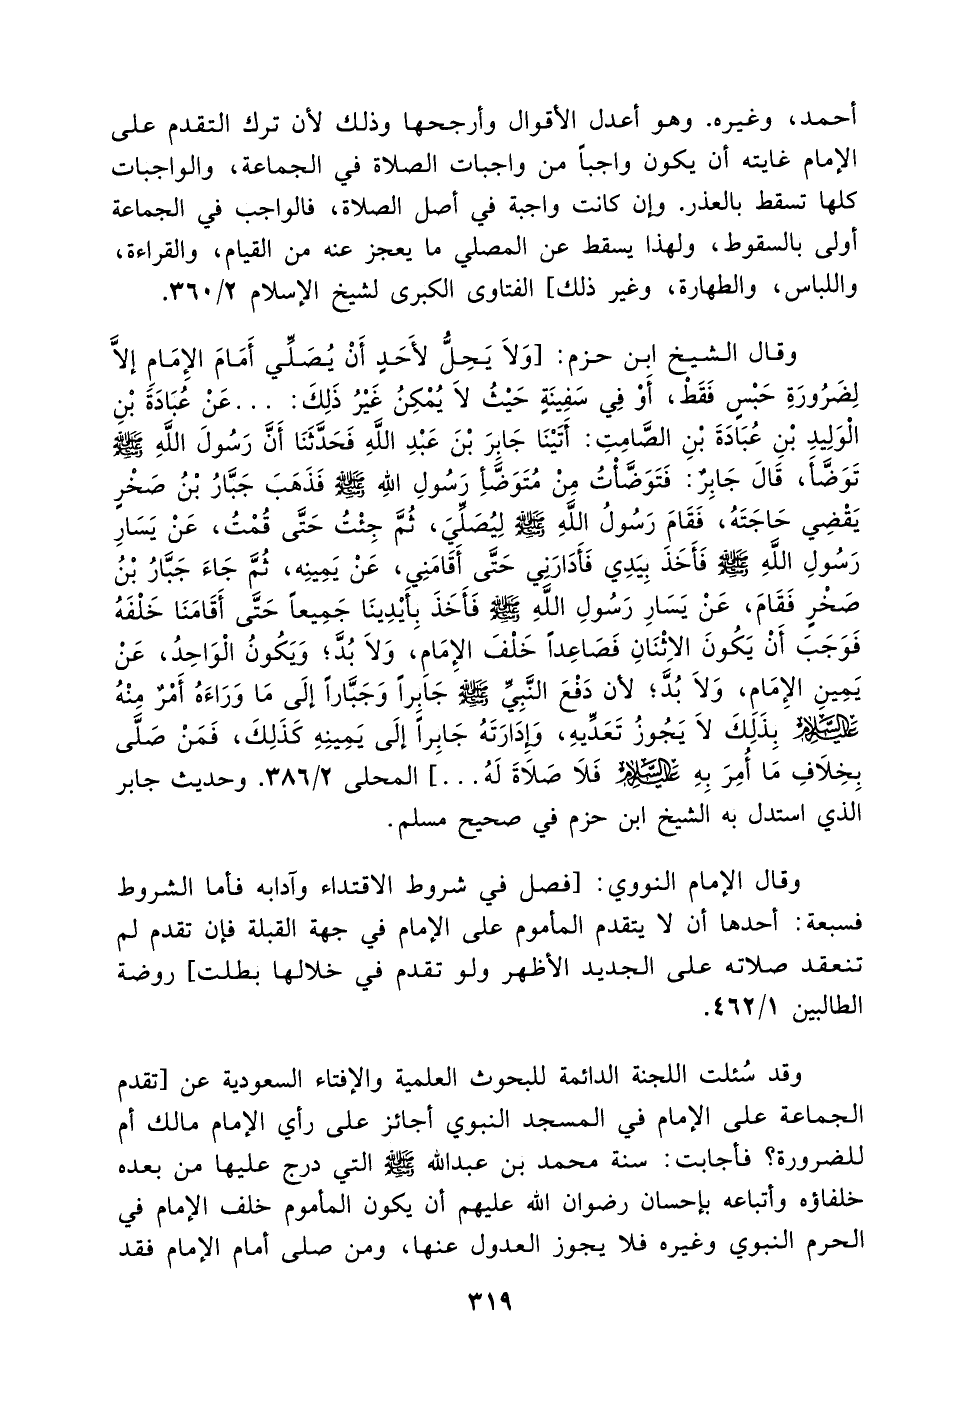 أحمد، وغيره. وهو أعدل الأقوال وأرجحها وذلك لأن ترك التقدم على
الإمام غايته أن يكون واجباً من واجبات الصلاة في الجماعة، والواجبات
كلها تسقط بالعذر. وإن كانت واجبة في أصل الصلاة، فالواجب في الجماعة
أولى بالسقوط، ولهذا يسقط عن المصلي ما يعجز عنه من القيام، والقراءة،
واللباس، والطهارة، وغير ذلك] الفتاوى الكبرى لشيخ الإسلام ٣٦٠/٢.
وقال الشيخ ابن حزم: [وَلاَ يَحِلُّ لأَحَدٍ أَنْ يُصَلِّي أَمَامَ الإِمَامِ إلاَّ
لِضَرُورَةِ حَبْسٍ فَقَطْ، أَوْ فِي سَفِينَةٍ حَيْثُ لاَ يُمْكِنُ غَيْرُ ذَلِكَ: ...عَنْ عُبَادَةَ بْنِ
الْوَلِيدِ بْنِ عُبَادَةَ بْنِ الصَّامِتِ: أَتَيْنَا جَابِرَ بْنَ عَبْدِ اللَّهِ فَحَدَّثَنَا أَنَّ رَسُولَ اللَّهِ ﷺ
تَوَضَّأَ، قَالَ جَابِرٌ: فَتَوَضَّأْتُ مِنْ مُتَوَضَّأِ رَسُولِ اللهِ ﷺ فَذَهَبَ جَبَّارُ بْنُ صَخْرٍ
يَقْضِي حَاجَتَهُ، فَقَامَ رَسُولُ اللَّهِ ﷺ لِيُصَلِّيَ، ثُمَّ جِئْتُ حَتَّى قُمْتُ، عَنْ يَسَارِ
رَسُولِ اللَّهِ ﷺ فَأَخَذَ بِيَدِي فَأَدَارَنِي حَتَّى أَقَامَنِي، عَنْ يَمِينِه، ثُمَّ جَاءَ جَبَّارُ بْنُ
صَخْرٍ فَقَامَ، عَنْ يَسَارِ رَسُولِ اللَّهِ ﷺ فَأَخَذَ بِأَيْدِينَا جَمِيعاً حَتَّى أَقَامَنَا خَلْفَهُ
فَوَجَبَ أَنْ يَكُونَ الاِثْنَانِ فَصَاعِداً خَلْفَ الإِمَامِ، وَلاَ بُدَّ؛ وَيَكُونُ الْوَاحِدُ، عَنْ
يَمِينِ الإِمَامِ، وَلاَ بُدَّ؛ لأن دَفْعَ النَّبِيِّ ﷺ جَابِراً وَجَبَّاراً إلَى مَا وَرَاءَهُ أَمْرٌ مِنْهُ
عليه السلام بِذَلِكَ لاَ يَجُوزُ تَعَدِّيهِ، وَإِدَارَتَهُ جَابِراً إلَى يَمِينِهِ كَذَلِكَ، فَمَنْ صَلَّى
بِخِلاَفِ مَا أُمِرَ بِهِ عليه السلام فَلاَ صَلاَةَ لَهُ...] المحلى ٣٨٦/٢. وحديث جابر
الذي استدل به الشيخ ابن حزم في صحيح مسلم.
وقال الإمام النووي: [فصل في شروط الاقتداء وآدابه فأما الشروط
فسبعة: أحدها أن لا يتقدم المأموم على الإمام في جهة القبلة فإن تقدم لم
تنعقد صلاته على الجديد الأظهر ولو تقدم في خلالها بطلت] روضة
الطالبين ٤٦٢/١.
وقد سُئلت اللجنة الدائمة للبحوث العلمية والإفتاء السعودية عن [تقدم
الجماعة على الإمام في المسجد النبوي أجائز على رأي الإمام مالك أم
للضرورة؟ فأجابت: سنة محمد بن عبدالله ﷺ التي درج عليها من بعده
خلفاؤه وأتباعه بإحسان رضوان الله عليهم أن يكون المأموم خلف الإمام في
الحرم النبوي وغيره فلا يجوز العدول عنها، ومن صلى أمام الإمام فقد
٣١٩